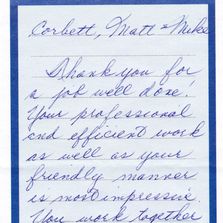 Corbett, Matt & Mike
Thank you for
a job well done.
Your professional
and efficient work
as well as your
friendly manner
is most impressive.
You work together